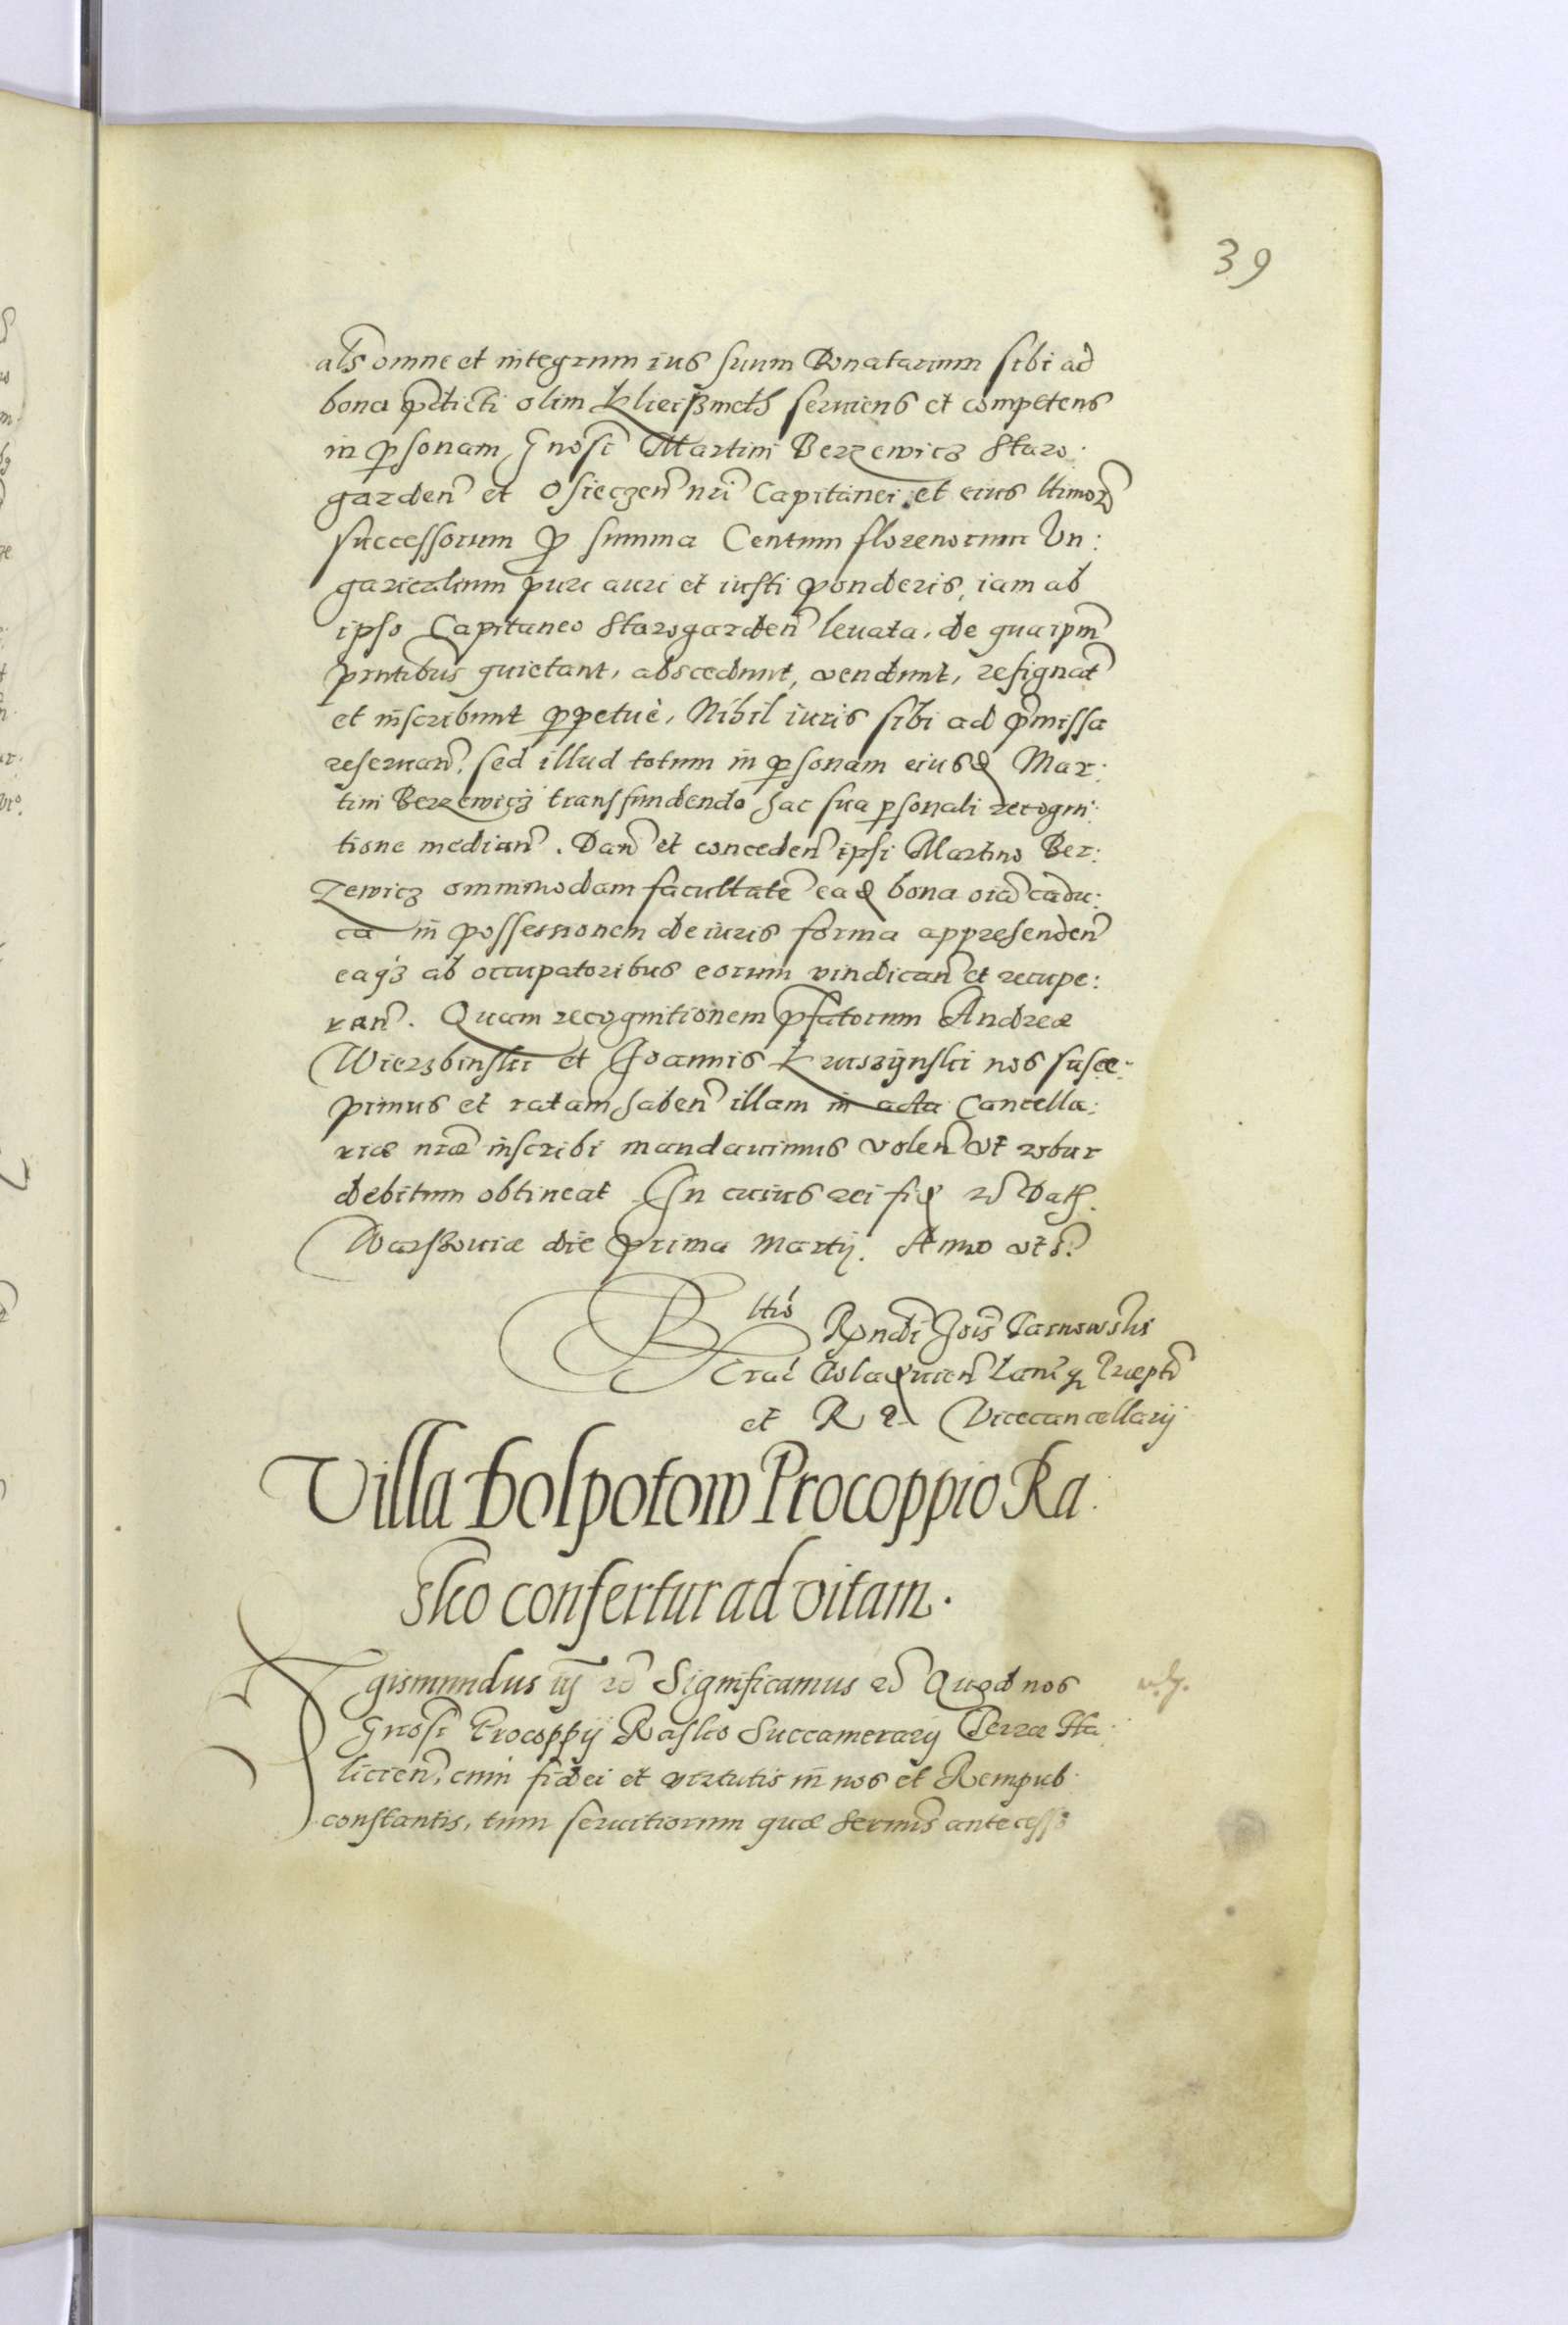 39
als̄ omne et integrum ius suum Donatarium sibi ad
bona pdicti olim Kleiszmeth seruiens et competens
in psonam Gnosi Martini Berzewicz Staro:
garden̄ et Osieczen̄ nri Capitanei et eius ltimor̄
successorum p summa Centum florenorum Vn:
garicalium puri auri et iusti ponderis, iam ab
ipso Capitaneo Starogarden̄ leuata, de qua ipm̄
pntibus quietant, abscedunt, vendunt, resignāt
et inscribunt ppetuè, Nihil iuris sibi ad pmissa
reseruan̄, sed illud totum in psonam eiusd Mar:
tini Berzewicz transfundendo hac sua psonali recogni:
tione median̄. Dan̄ et conceden̄ ipsi Martino Ber:
zewicz omnimodam facultatē ead bona oiā cadu:
ca in possessionem de iuris forma apprehenden̄
eaqz ab occupatoribus eorum vindican̄ et recupe:
ran̄. Quam recognitionem pfatorum Andreæ
Wierzbinski et Joannis Kruszÿnski nos susce:
pimus et ratam haben̄ illam in acta Cancella:
riæ nræ inscribi mandauimus volen̄ vt robur
debitum obtineat In cuius rei fid Dath.
Warszouiæ die prima Martij. Anno vt s.
Rltio Rndi Jois̄ Tarnowski
Vladislauien̄ Præpti
et R P Vicecancellarij
Villa Bolpotow Procoppio Ra:
sko confertur ad vitam.
Sigismundus iij Significamus Quod nos
Gnosi Procoppij Rasko Succamerarij Terræ Ha:
licien̄, cum fidei et virtutis in nos et Rempub:
constantis, tum seruitiorum quæ Sermis̄ antecesso